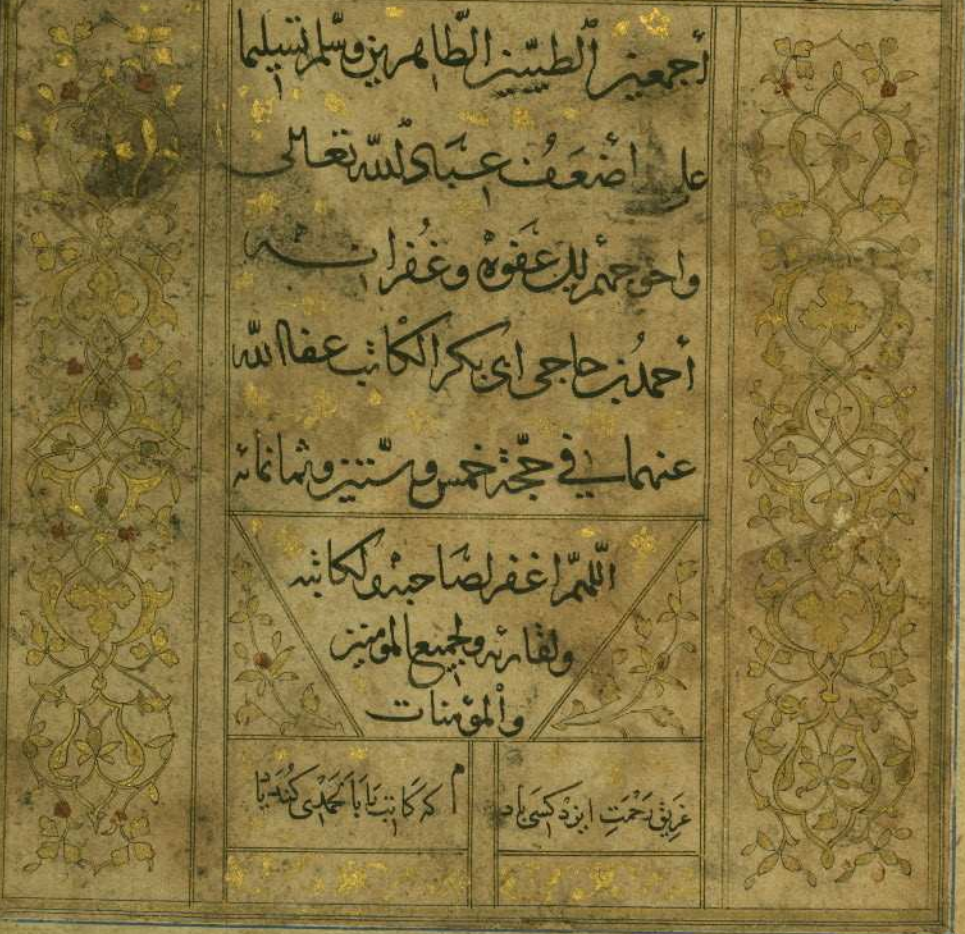 أجمعين الطيّبين الطّاهرين وسلّم تسليما
على أضعف عباد الله تعالى
واحوجهم إلى عفوه وغفرانه
أحمد بن حاجي ابي بكر الكاتب عفا الله
عنهما في حجّة خمس وستّين وثمانمائه
اللّهمّ اغفر لصاحبه ولكاتبه
ولقارئه ولجميع المومنين
والمؤمنات
غريق رحمت ايزد كسى باد
كه كاتب را با لحمدى كند ياد